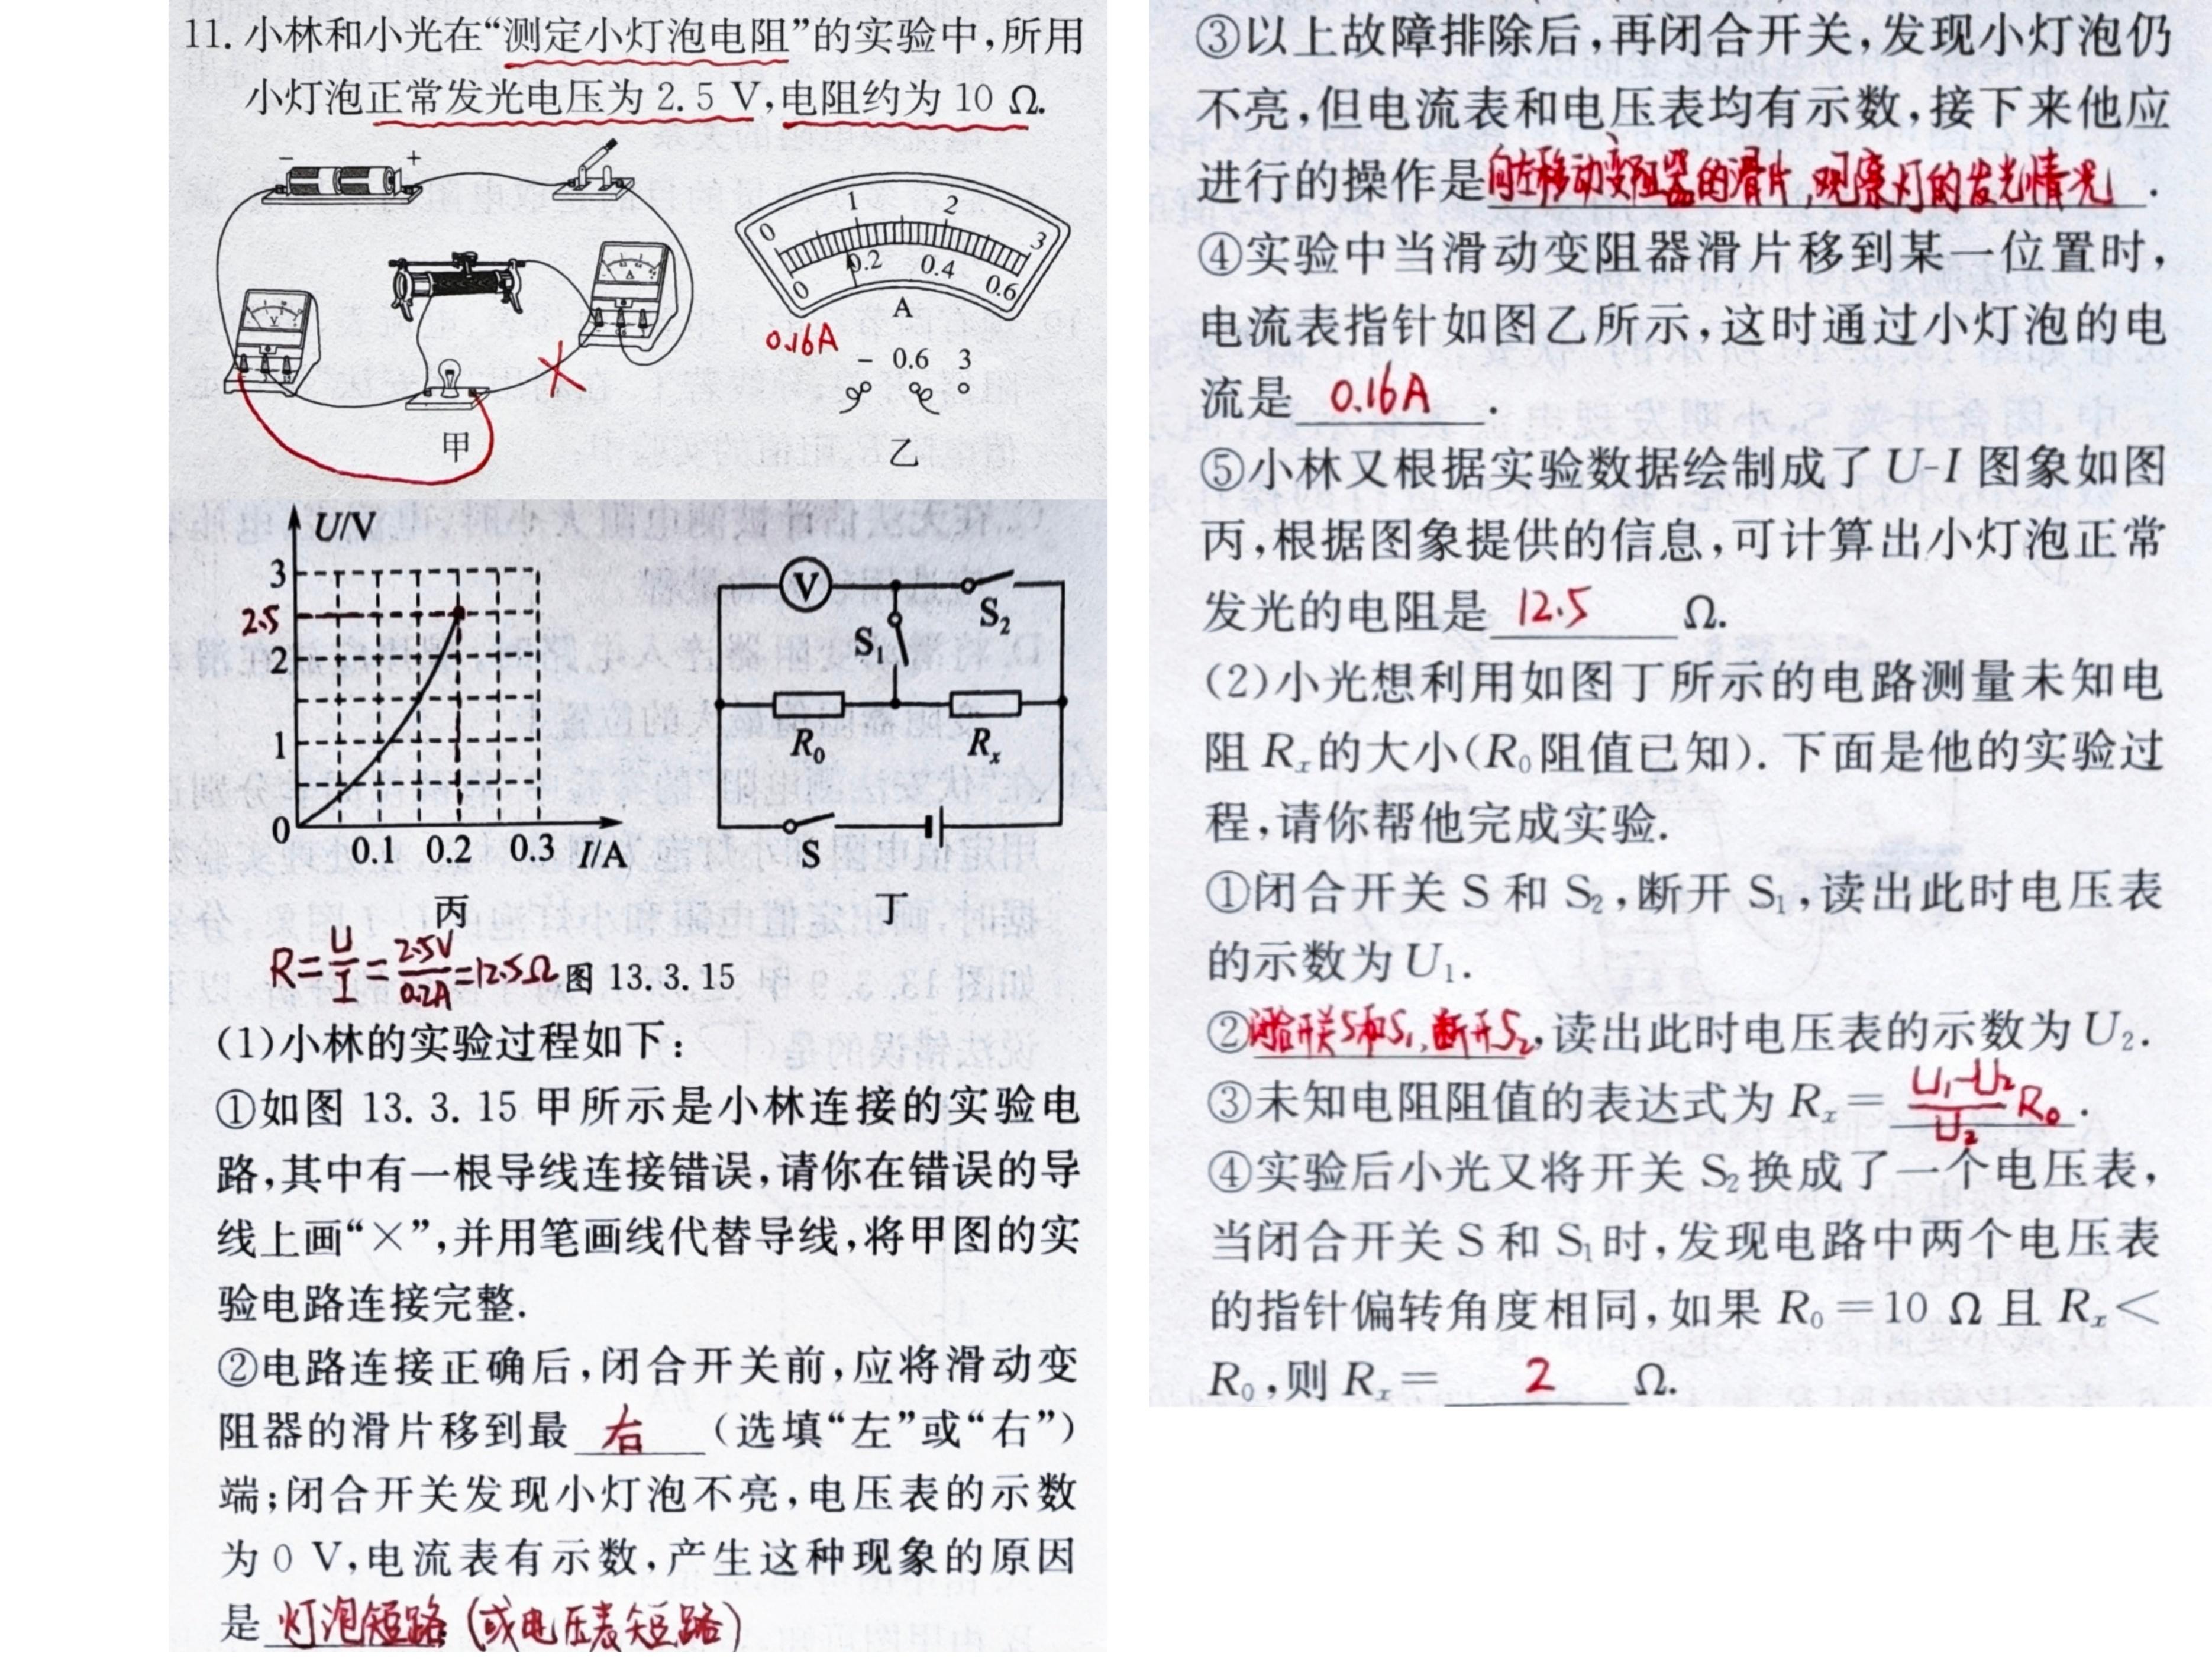 11. 小林和小光在“测定小灯泡电阻”的实验中,所用
小灯泡正常发光电压为 2.5 V,电阻约为 10 Ω.
- +
V
A
甲
0 1 2 3
0 0.2 0.4 0.6
A
0.16A
- 0.6 3
乙
U/V
3
2.5
2
1
0
0.1 0.2 0.3 I/A
丙
V
S₂
S₁
R₀ Rₓ
S
丁
R=U/I=2.5V/0.2A=12.5Ω 图 13.3.15
(1)小林的实验过程如下:
①如图 13.3.15 甲所示是小林连接的实验电
路,其中有一根导线连接错误,请你在错误的导
线上画“×”,并用笔画线代替导线,将甲图的实
验电路连接完整.
②电路连接正确后,闭合开关前,应将滑动变
阻器的滑片移到最 右 (选填“左”或“右”)
端;闭合开关发现小灯泡不亮,电压表的示数
为 0 V,电流表有示数,产生这种现象的原因
是 灯泡短路(或电压表短路)
③以上故障排除后,再闭合开关,发现小灯泡仍
不亮,但电流表和电压表均有示数,接下来他应
进行的操作是向左移动变阻器的滑片,观察灯的发光情况.
④实验中当滑动变阻器滑片移到某一位置时,
电流表指针如图乙所示,这时通过小灯泡的电
流是 0.16A .
⑤小林又根据实验数据绘制成了 U-I 图象如图
丙,根据图象提供的信息,可计算出小灯泡正常
发光的电阻是 12.5 Ω.
(2)小光想利用如图丁所示的电路测量未知电
阻 Rₓ 的大小(R₀ 阻值已知). 下面是他的实验过
程,请你帮他完成实验.
①闭合开关 S 和 S₂,断开 S₁,读出此时电压表
的示数为 U₁.
②闭合开关S和S₁,断开S₂,读出此时电压表的示数为 U₂.
③未知电阻阻值的表达式为 Rₓ= (U₁-U₂)/U₂ R₀ .
④实验后小光又将开关 S₂ 换成了一个电压表,
当闭合开关 S 和 S₁ 时,发现电路中两个电压表
的指针偏转角度相同,如果 R₀=10 Ω 且 Rₓ<
R₀,则 Rₓ= 2 Ω.